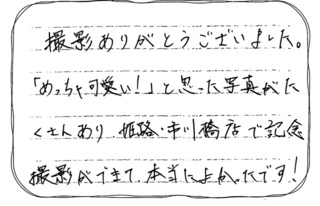 撮影ありがとうございました。
「めっちゃ可愛い！」と思った写真がた
くさんあり 姫路・市川橋店で記念
撮影ができて 本当によかったです！